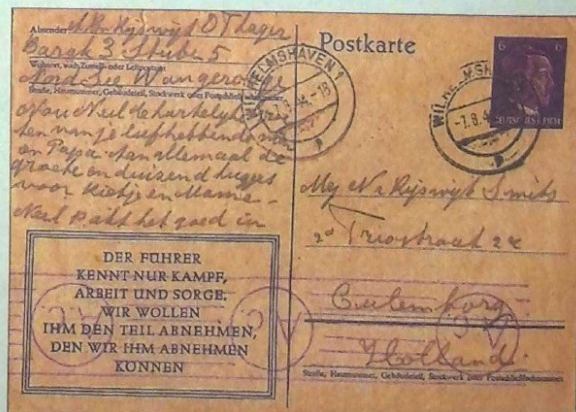 Absender:
N. v. Rijswijk D T Lager
Barak 3 Stube 5
Wohnort, auch Zustell- oder Leitpostamt
Nord See Wangerooge
Straße, Hausnummer, Gebäudeteil, Stockwerk oder Postschließfachnummer
Nou Neel de hartelijke
van je liefhebbende man
en Papa. aan allemaal de
groete en duizend kusjes
voor Kietje en Mamie.
Neel pakt het goed in
DER FÜHRER
KENNT NUR KAMPF,
ARBEIT UND SORGE.
WIR WOLLEN
IHM DEN TEIL ABNEHMEN,
DEN WIR IHM ABNEHMEN
KÖNNEN
Postkarte
WILHELMSHAVEN 1
WILHELMSH
-7.8.4
6 6
DEUTSCHES REICH
Mej N v Rijswijk Smits
Triostraat
Culemborg
Holland.
Straße, Hausnummer, Gebäudeteil, Stockwerk oder Postschließfachnummer
Ac
Ac
Ac